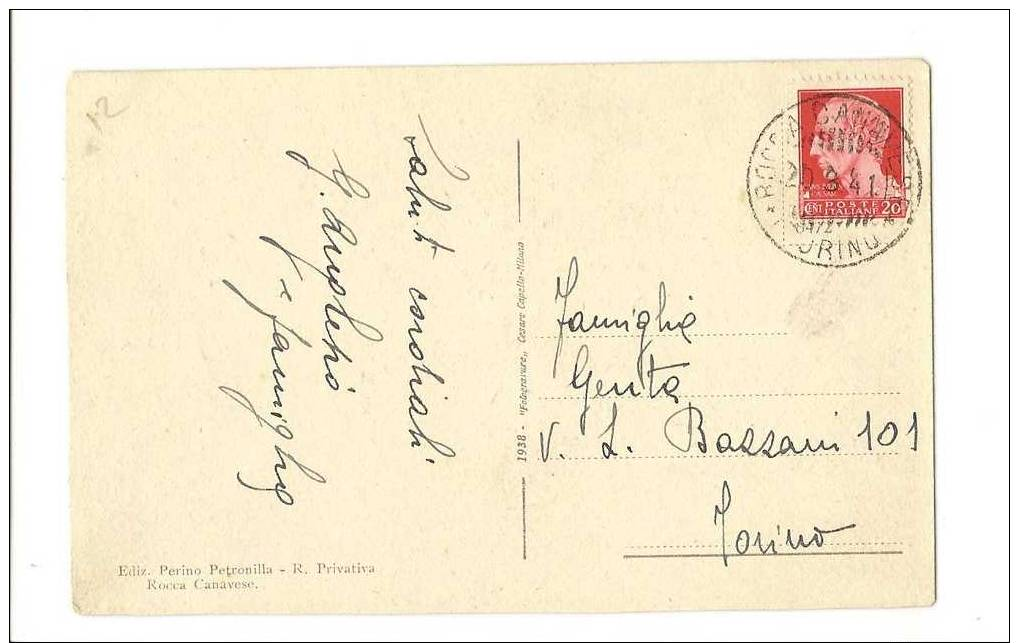 12
Saluti cordiali
e famiglia
ROCCA CANAVESE
20.8.41
TORINO
CENT POSTE 20
ITALIANE
1938 - "Fotogravure" Cesare Capello-Milano
Famiglia
Genta
V. L. Bassani 101
Torino
Ediz. Perino Petronilla - R. Privativa
Rocca Canavese.